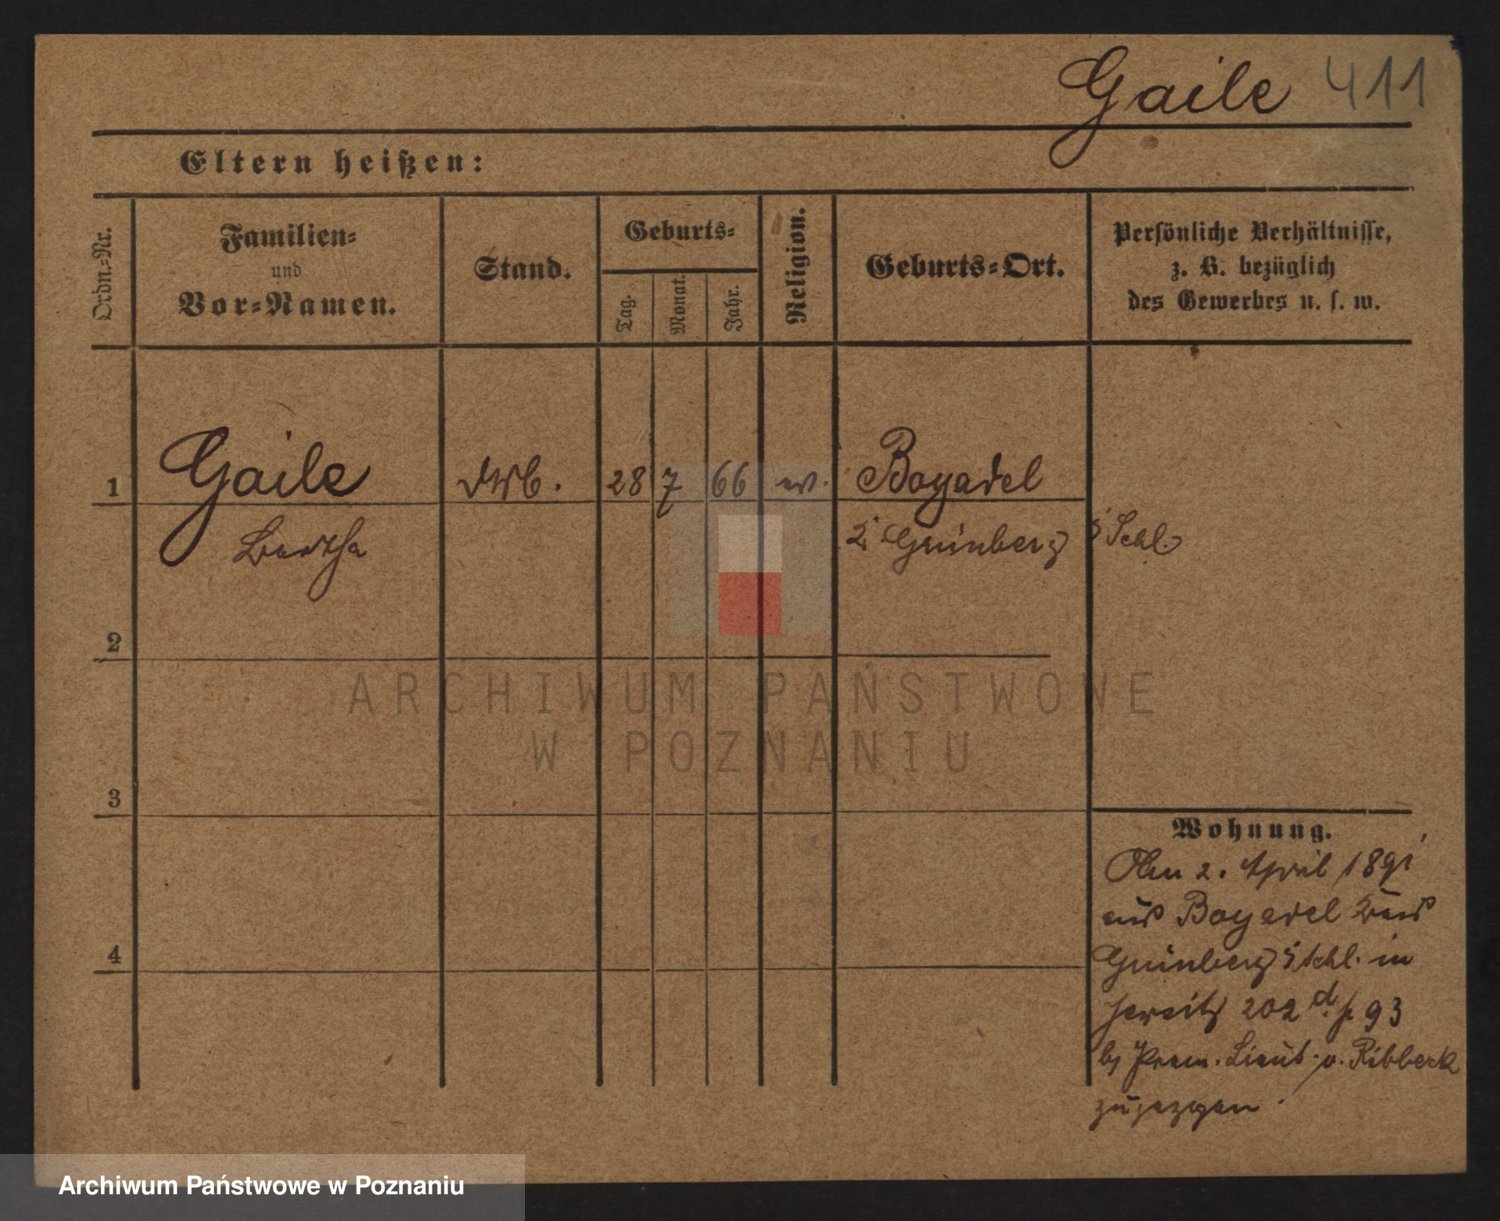 Gaile 411
Eltern heißen:
Ordn.-Nr.
Familien-
und
Vor-Namen.
Stand.
Geburts-
Tag.
Monat.
Jahr.
Religion.
Geburts-Ort.
Persönliche Verhältnisse,
z. B. bezüglich
des Gewerbes u. s. w.
1
Gaile
28 7 66 ev. Boyadel
Bertha
Grünberg i/Schl.
2
ARCHIWUM PAŃSTWOWE
W POZNANIU
3
Wohnung.
2. April 1891
aus Boyadel Kreis
Grünberg i/Schl. in
Jersitz 202 d
b/ Prem. Lieut. v. Ribbeck
zugezogen.
4
Archiwum Państwowe w Poznaniu